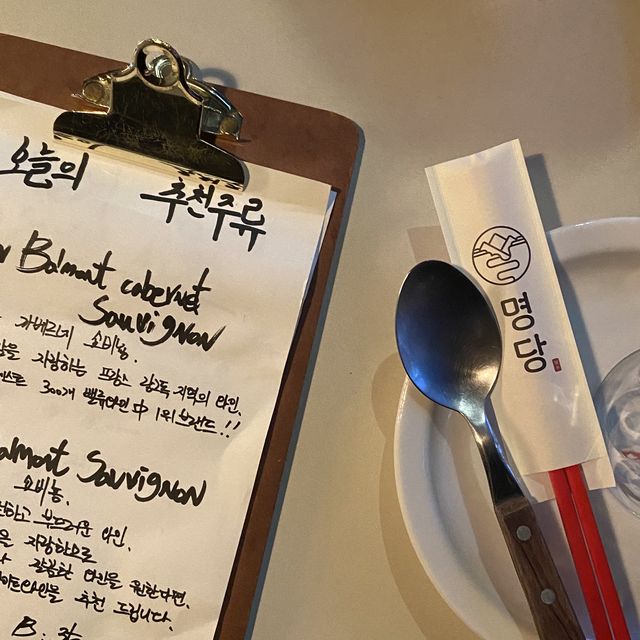 오늘의 추천주류
Balmont cabernet
Sauvignon
까베르네 소비뇽
자랑하는 프랑스 랑독 지역의 와인.
300개 밸류와인 中 1위 브랜드!!
almont Sauvignon
소비뇽.
하고 부드러운 와인.
을 자랑하므로
깔끔한 와인을 원한다면,
와인을 추천 드립니다.
명당